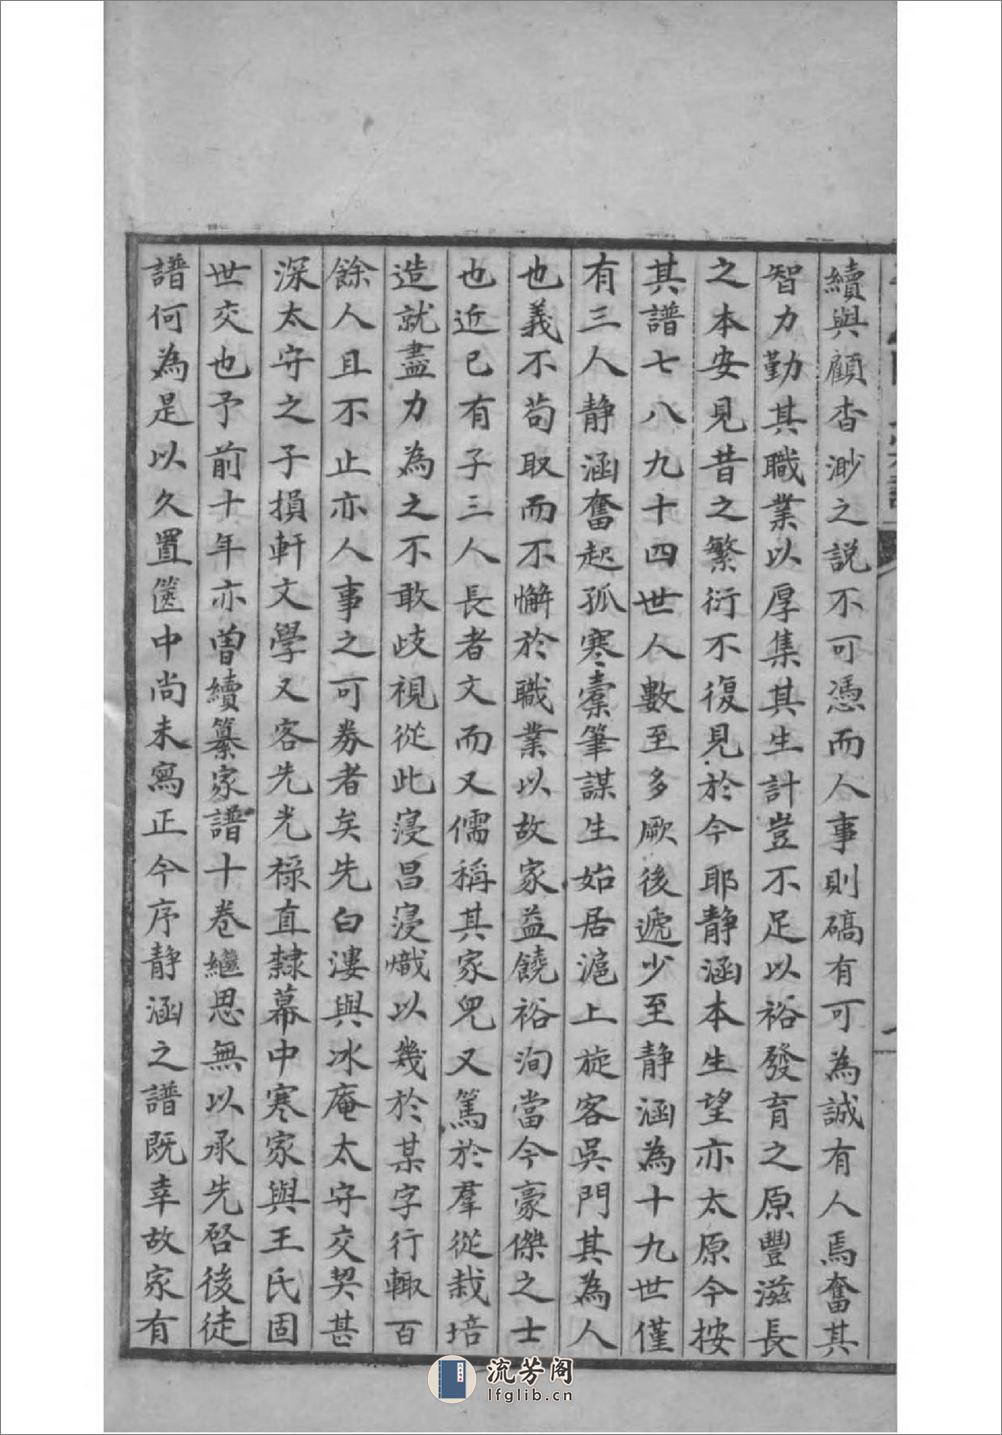 續與顧杳渺之說不可憑而人事則碻有可為誠有人焉奮其
智力勤其職業以厚集其生計豈不足以裕發育之原豐滋長
之本安見昔之繁衍不復見於今耶靜涵本生望亦太原今按
其譜七八九十四世人數至多厥後遞少至靜涵為十九世僅
有三人靜涵奮起孤寒橐筆謀生始居滬上旋客吳門其為人
也義不苟取而不懈於職業以故家益饒裕洵當今豪傑之士
也近已有子三人長者文而又儒稱其家兒又篤於羣從栽培
造就盡力為之不敢歧視從此寖昌寖熾以幾於某字行輙百
餘人且不止亦人事之可券者矣先白漊與冰庵太守交契甚
深太守之子損軒文學又客先光祿直隸幕中寒家與王氏固
世交也予前十年亦曾續纂家譜十卷繼思無以承先啓後徒
譜何為是以久置篋中尚未寫正今序靜涵之譜既幸故家有
流芳阁
lfglib.cn